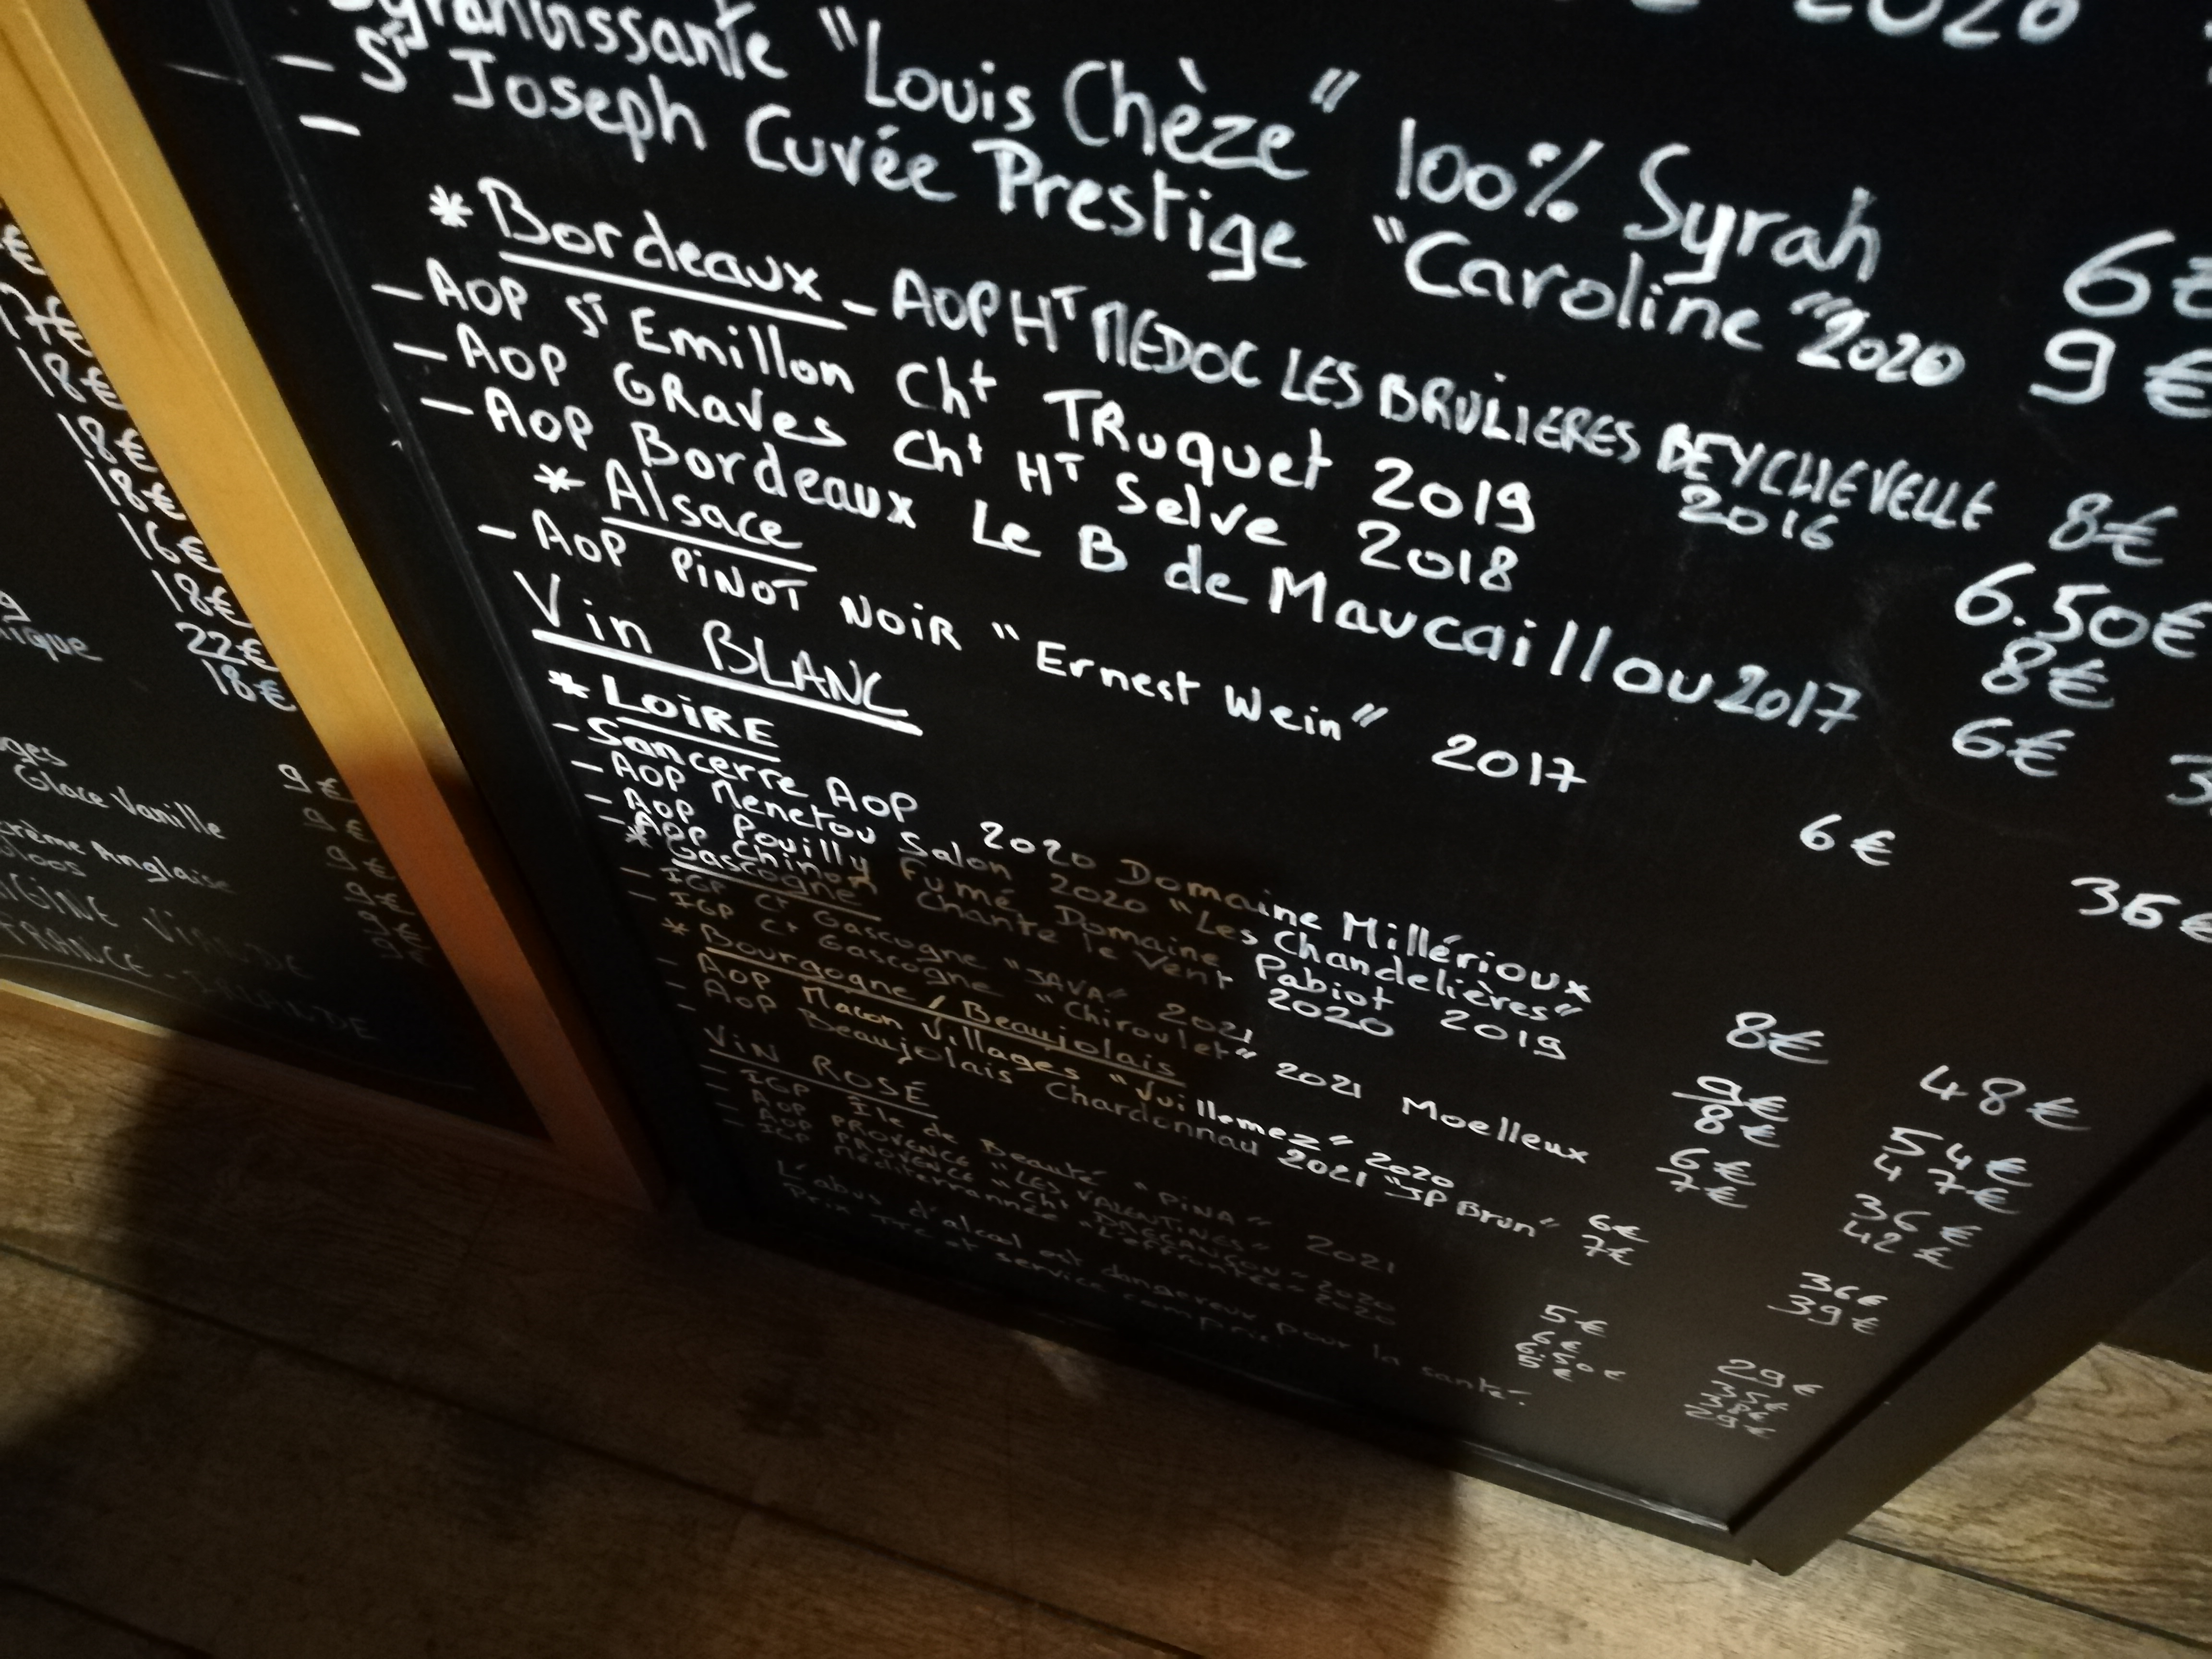 2020
"Louis Chèze" 100% Syrah 6€
- St Joseph Cuvée Prestige "Caroline" 2020 9€
-
* Bordeaux - AOP HT MEDOC LES BRULIERES BEYCHEVELLE 8€
2016
- AOP ST Emillon Cht TRuquet 2019 6.50€
- AOP GRaves Cht HT Selve 2018 8€
- AOP Bordeaux Le B de Maucaillou 2017 6€
* Alsace
- AOP PiNOT NOiR "Ernest Wein" 2017 6€ 36€
Vin BLANC
* LOiRE
- Sancerre AOP 2020 Domaine Millérioux 8€ 48€
- AOP Menetou Salon 2020 "Les Chandelières"
- AOP Pouilly Fumé Domaine Pabiot 2019 9€ 54€
- AOP Chinon Chante le Vent 2020 8€ 47€
* Gascogne
- IGP Ct Gascogne "JAVA" 2021 6€ 36€
- IGP Ct Gascogne "Chiroulet" 2021 Moelleux 7€ 42€
* Bourgogne / Beaujolais
- AOP Macon Villages "Vuillemez" 2020 6€ 36€
- AOP Beaujolais Chardonnau 2021 "JP Brun" 7€ 39€
ViN ROSÉ
- IGP Île de Beauté "PiNA" 2021 5€ 29€
- AOP PROVENCE "LES VALENTINES" 2020 6€
- AOP PROVENCE Cht 2020
- IGP Méditerrannée
L'abus d'alcool est dangereux pour la santé.
Prix TTC et service compris.
17€
18€
18€
18€
16€
18€
22€
18€
9€
Glace Vanille 9€
crème Anglaise 9€
9€
9€
VIANDE
FRANCE - IRLANDE